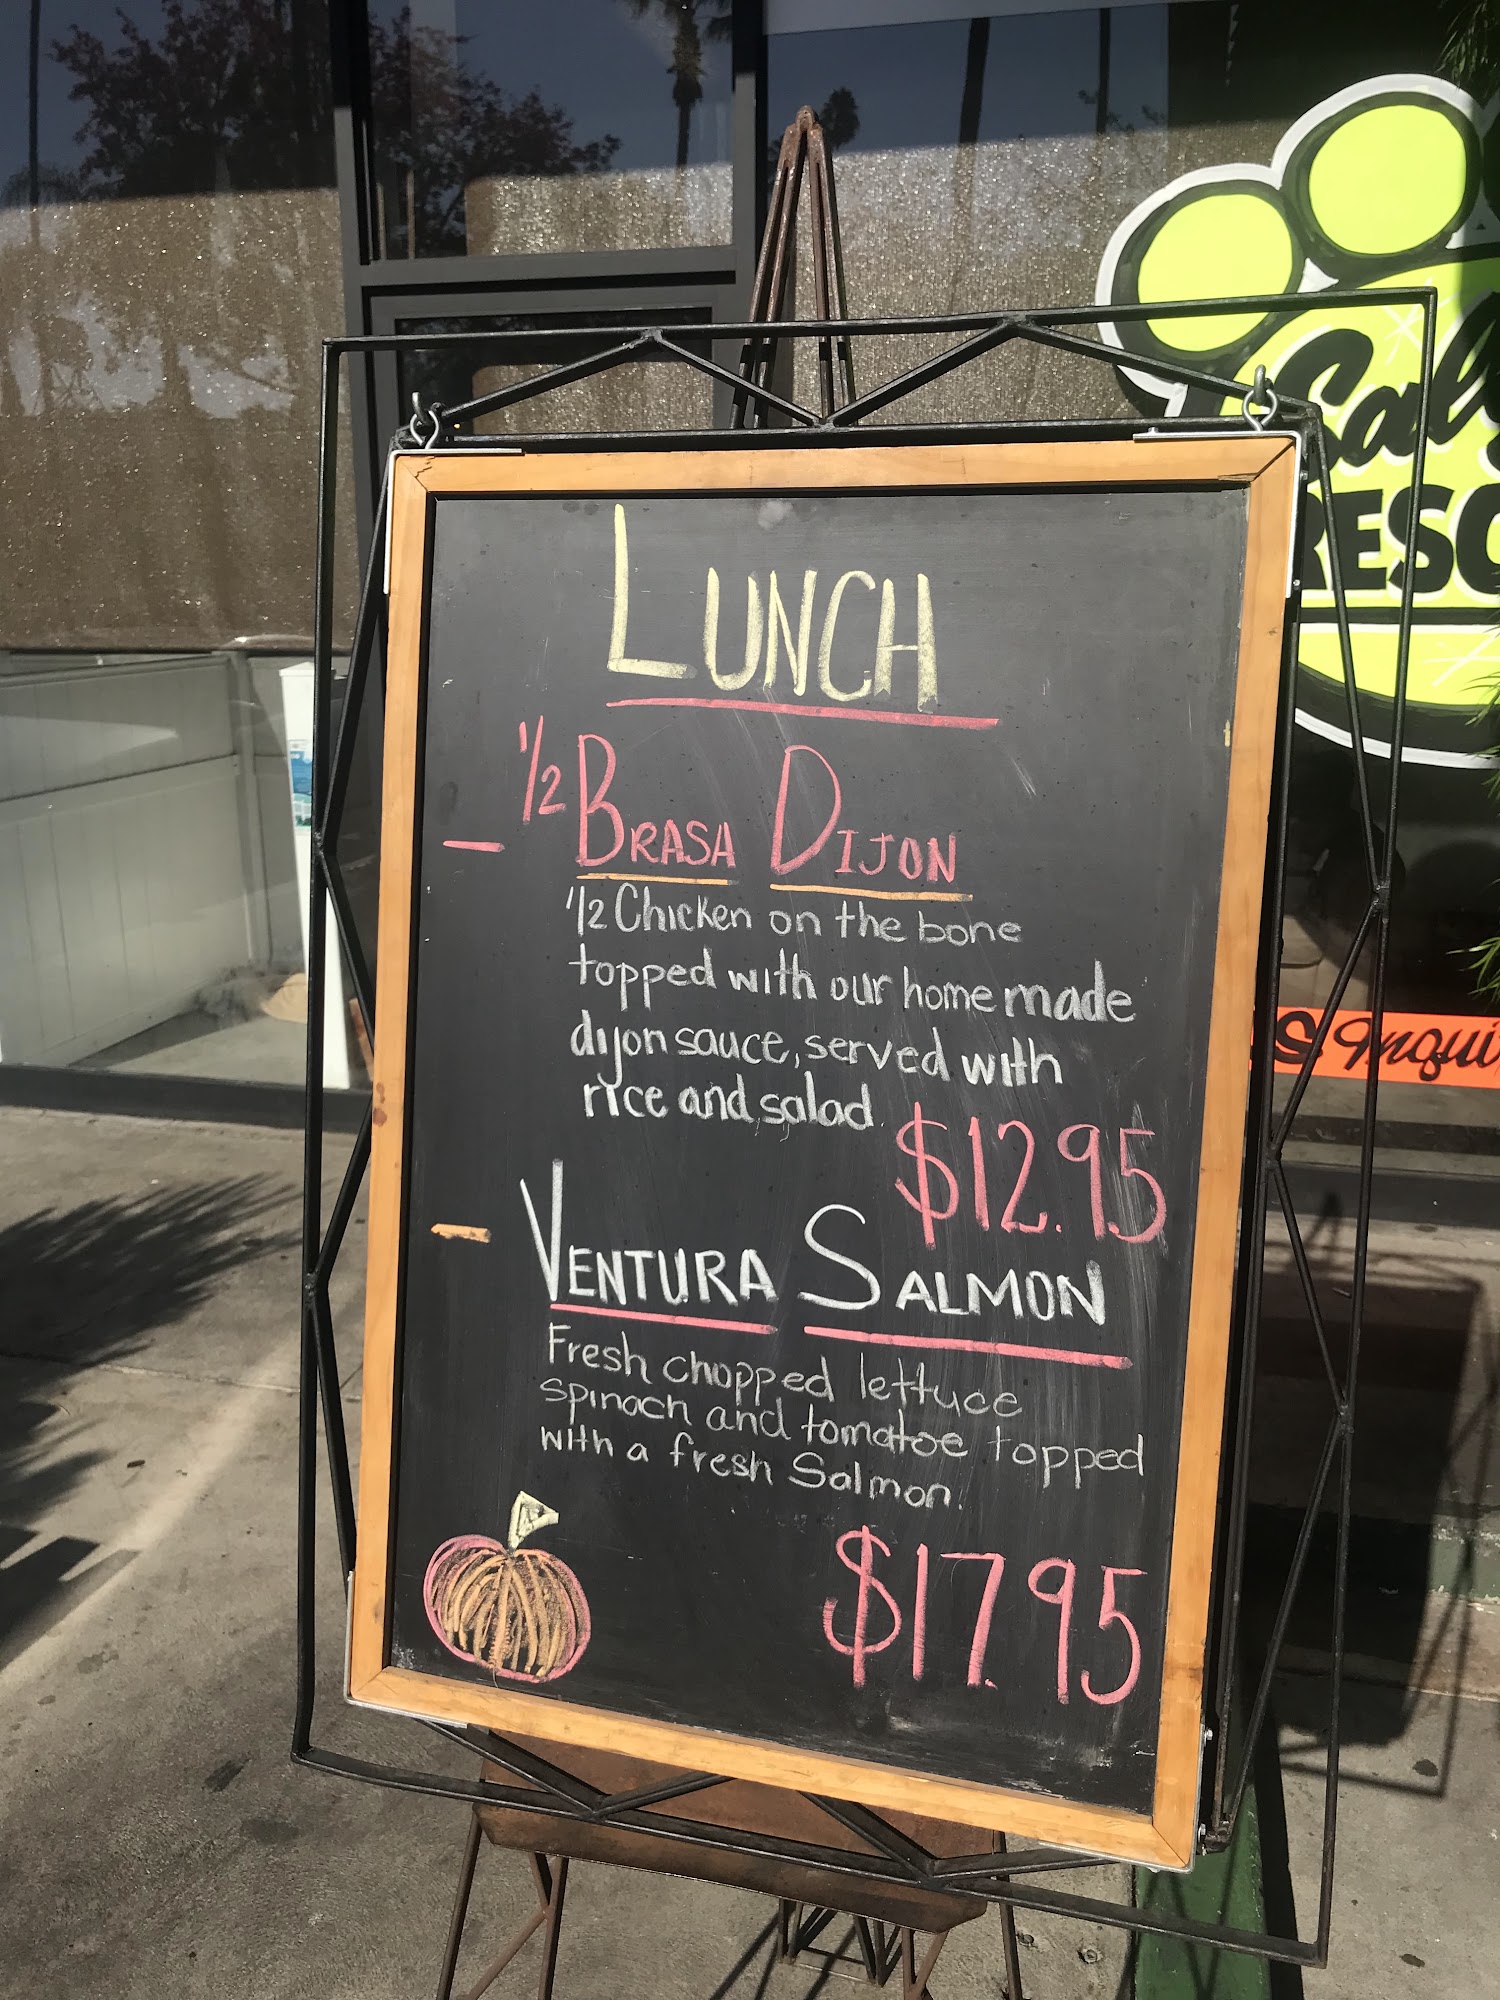 LUNCH
- 1/2 BRASA DIJON
1/2 Chicken on the bone
topped with our homemade
dijon sauce, served with
rice and salad.
$12.95
- VENTURA SALMON
Fresh chopped lettuce
spinach and tomatoe topped
with a fresh Salmon.
$17.95